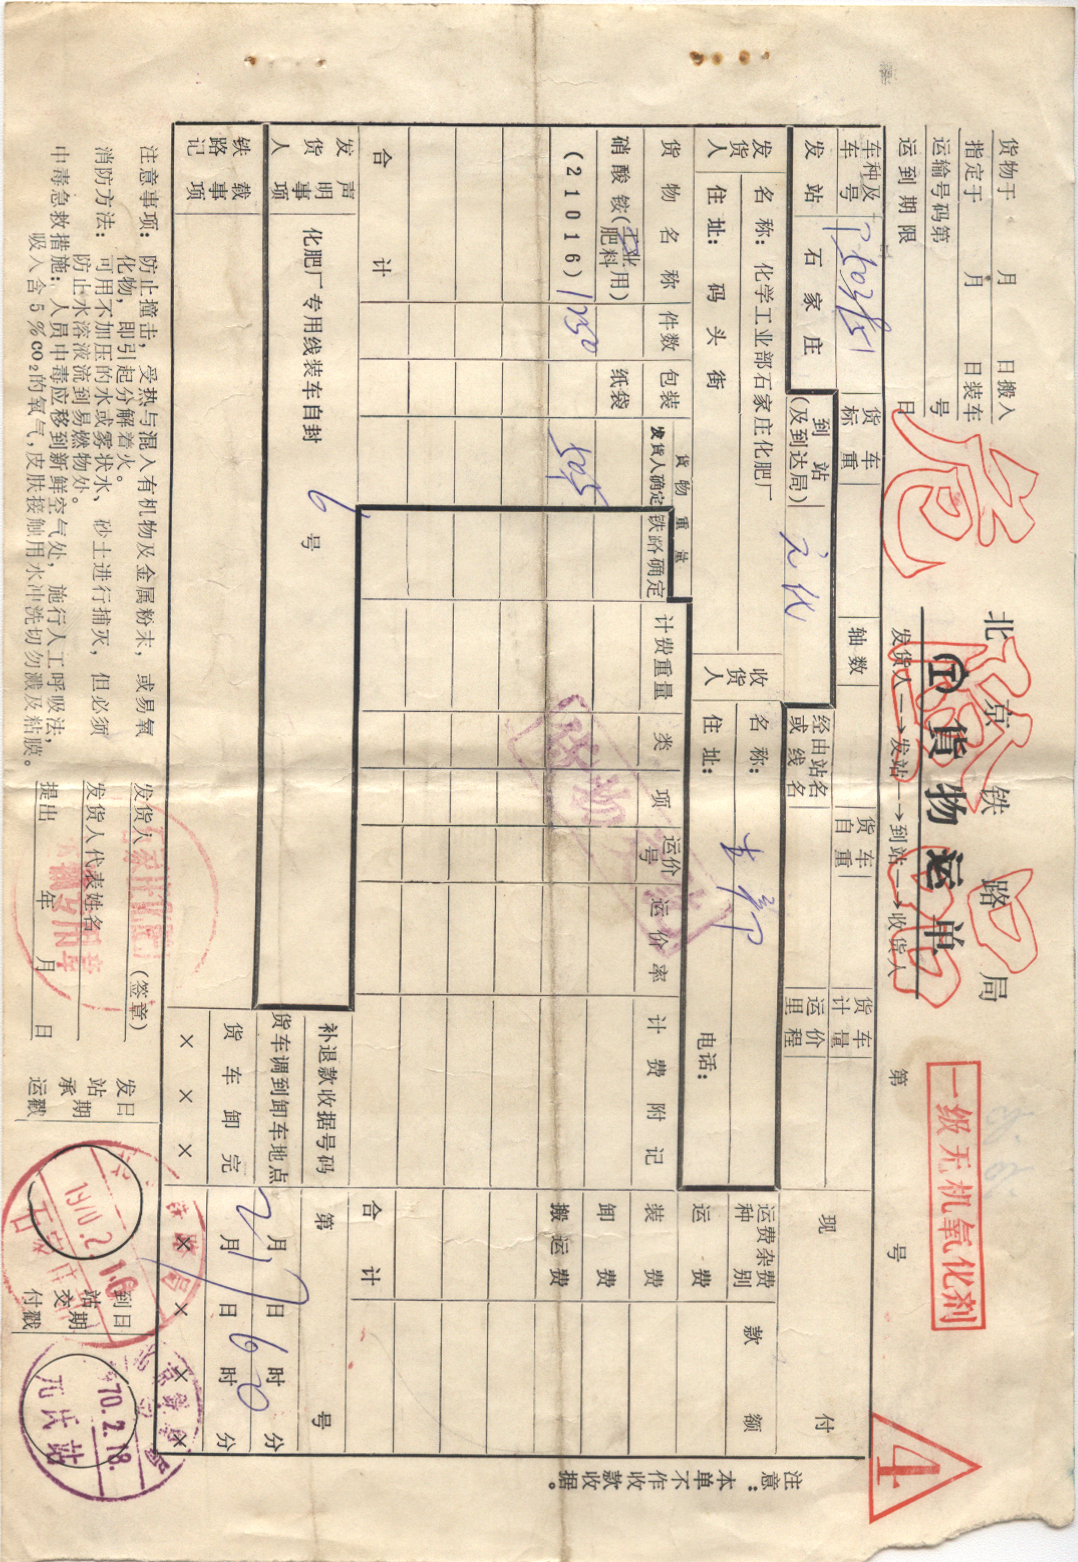 危险品
北京铁路局
货物运单
发货人→发站→到站→收货人
一级无机氧化剂
4
货物于 月 日搬入
指定于 月 日装车
运输号码第 号
运到期限 日
第 号
车种及车号 P503151
货车标重
轴数
货车自重
货车计量
现付
发站 石家庄
到站(及到达局) 元氏
经由站名或线名
运价里程
发货人
名称: 化学工业部石家庄化肥厂
住址: 码头街
收货人
名称:
住址:
电话:
运费杂费种别
款额
货物名称
件数
包装
货物重量
发货人确定
铁路确定
计费重量
类项
运价号
运价率
计费附记
运费
硝酸铵(工业用)
肥料
纸袋
装费
(21016)
1250
50.5
卸费
搬运费
货物交讫
合计
合计
发货人声明事项
化肥厂专用线装车自封 6号
补退款收据号码
第 号
货车调到卸车地点
2月17日6时20分
铁路记载事项
货车卸完
月 日 时 分
× × × × × ×
注意:本单不作收款收据。
注意事项: 防止撞击,受热与混入有机物及金属粉末,或易氧
化物,即引起分解着火。
消防方法: 可用不加压的水或雾状水、砂土进行捕灭,但必须
防止水溶液流到易燃物处。
中毒急救措施: 人员中毒应移到新鲜空气处,施行人工呼吸法,
吸入含5%co₂的氧气,皮肤接触用水冲洗切勿溅及粘膜。
发货人 (签章)
发货人代表姓名
提出 年 月 日
发站承运日期戳
1970.2.16
到站交付日期戳
70.2.18.
元氏站